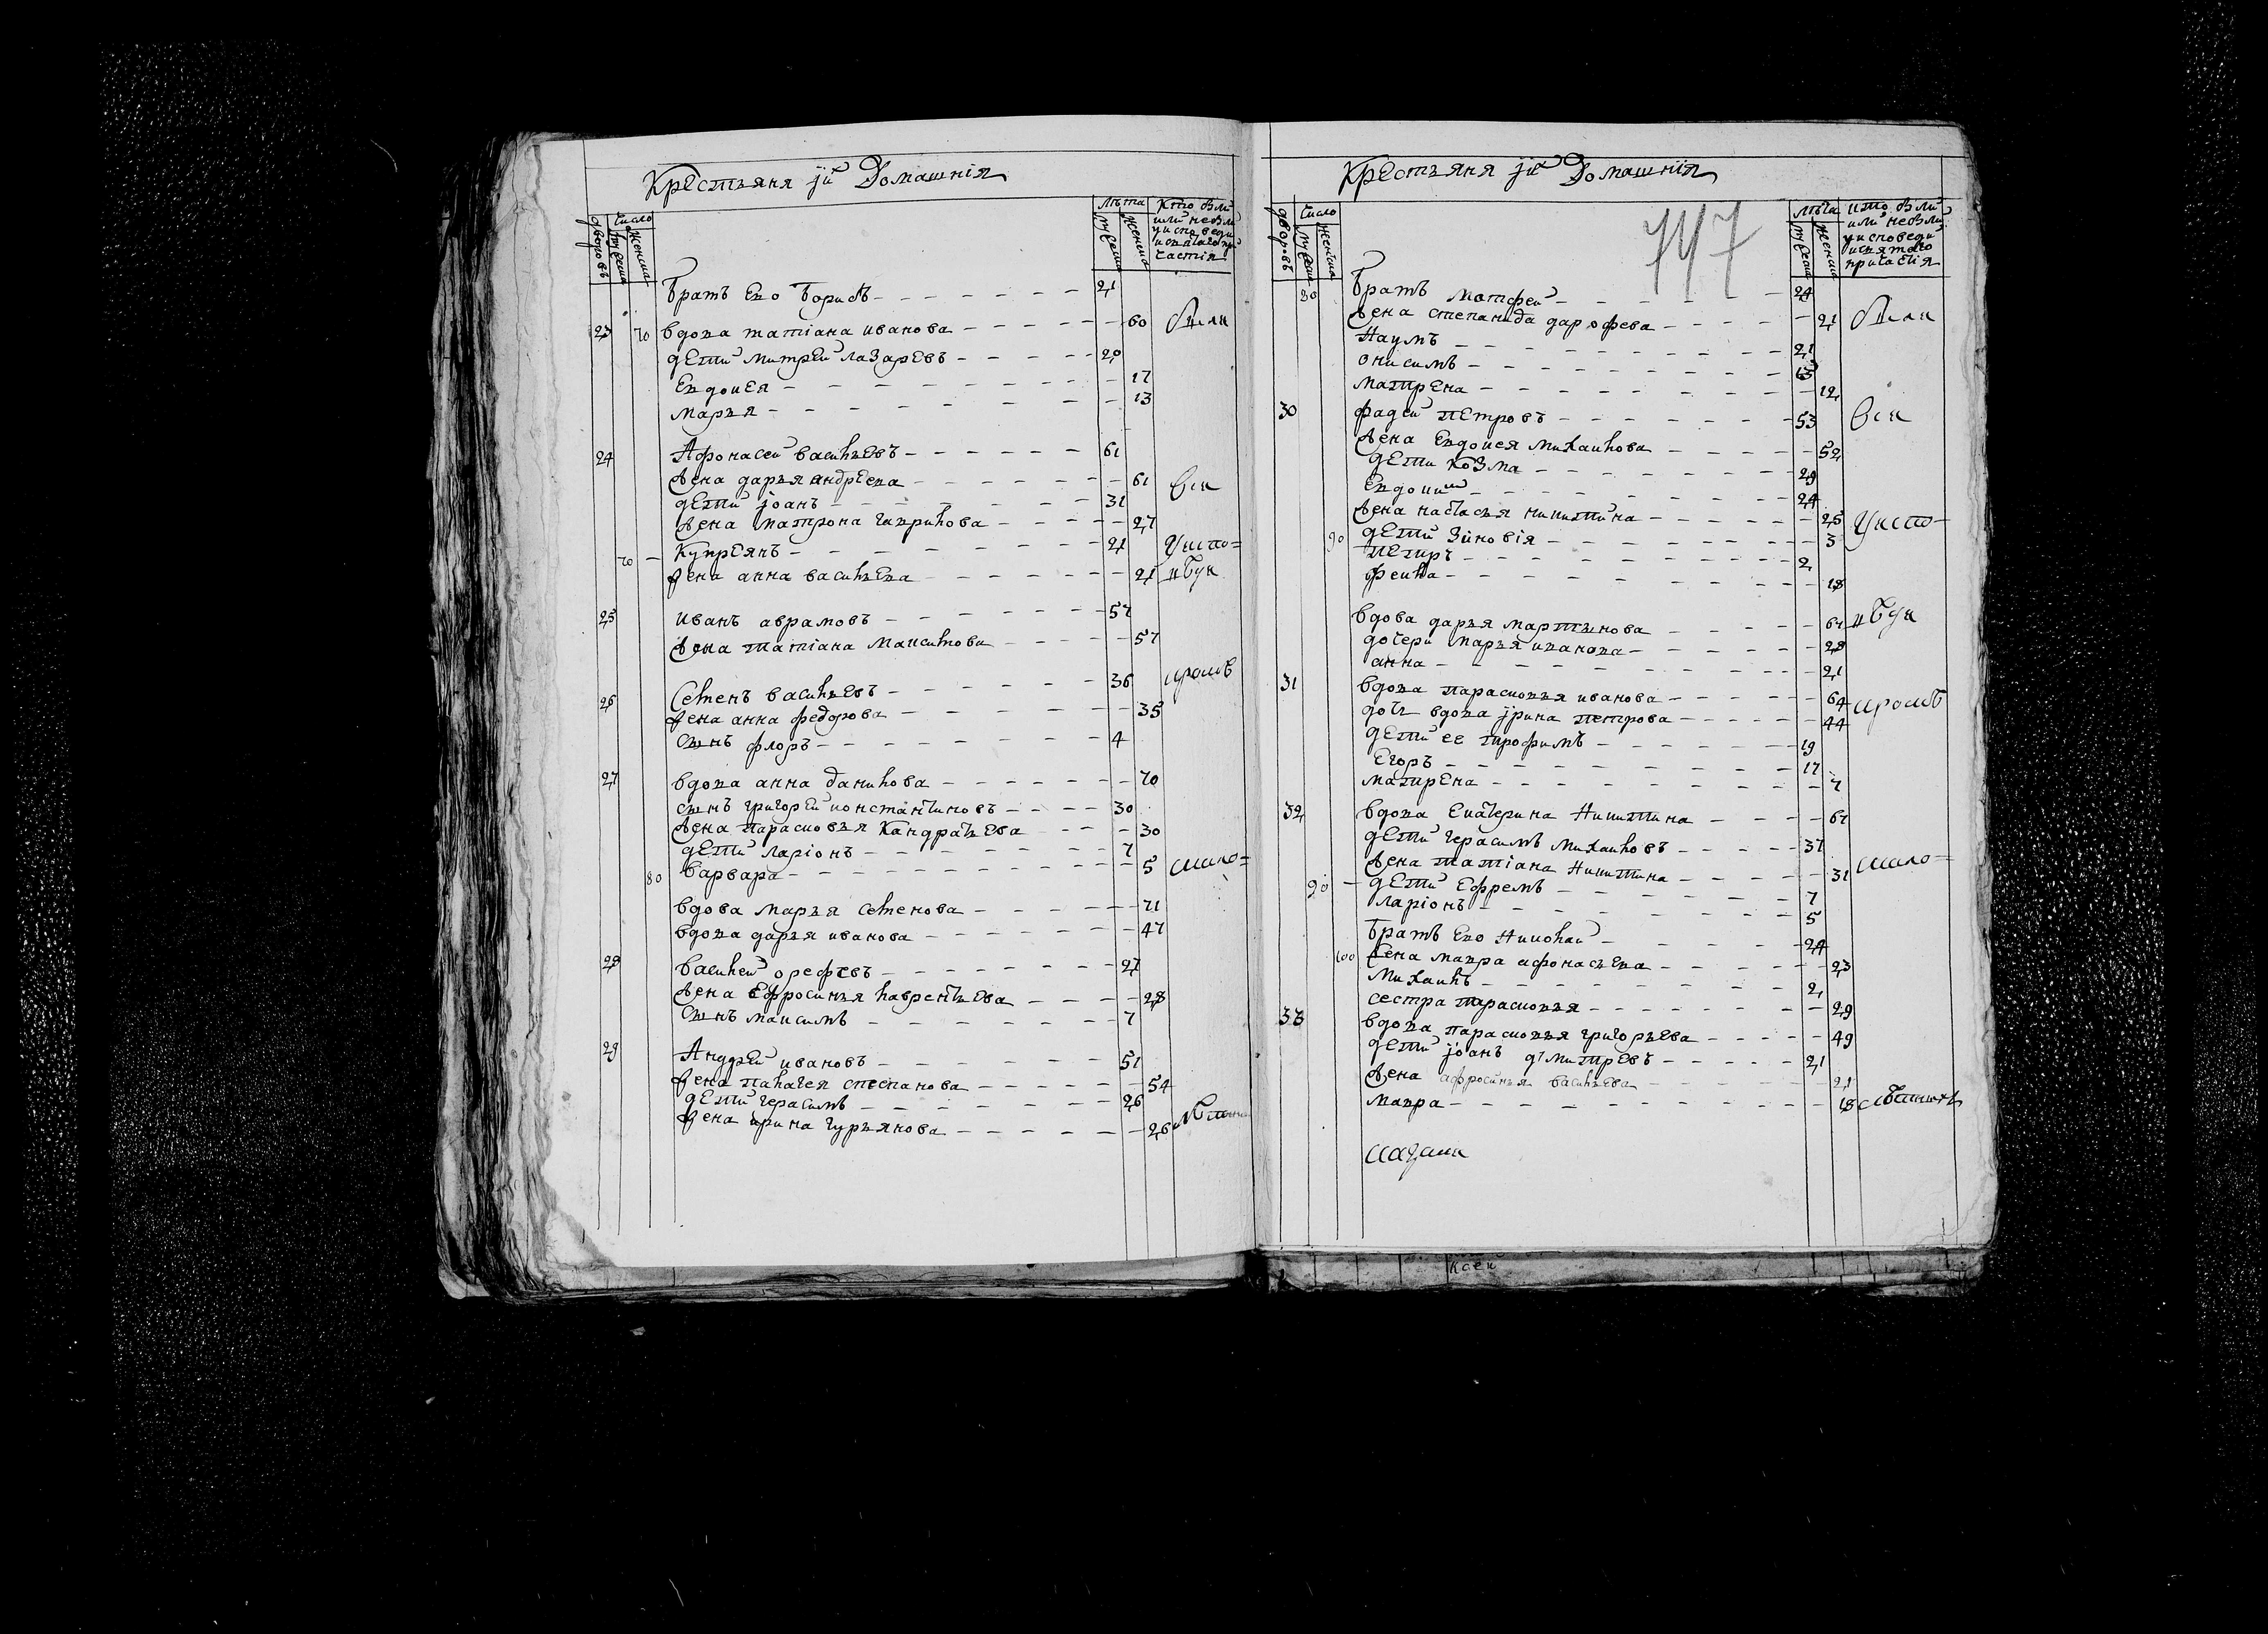 Крестьяня їи Домашнїя
Лѣта
Число
дворовъ
мужеска
женска
мужеска
женска
Кто были или небыли у исповеди и святаго причастїя
братъ Ево борисъ 21
23 70 вдова татїана иванова 60 были
дети митреи лазаревъ 20
Евдокея 17
марья 13
24 Афонасеи васильевъ 61
жена дарья андреева 61 вси
дети їоанъ 31
жена матрона гаврилова 27
70 Купреянъ 21 у испо=
жена анна васильева 21
25 иванъ аврамовъ 57
жена татїана максимова 57
26 Семенъ васильевъ 36 кроме
жена анна федорова 35
сынъ флоръ 4
27 вдова анна данилова 70
сынъ григореи константиновъ 30
жена парасковья кандратьева 30
дети ларїонъ 7
80 варвара 5 мало=
вдова марья семенова 71
вдова дарья иванова 47
28 василеи орефевъ 27
жена ефросинья лаврентьева 28
сынъ максимъ 7
29 Андреи ивановъ 51
жена палагея степанова 54
дети герасимъ 26
жена ирина гурьянова 26
Крестьяня їи Домашнїя
747
Лѣта
Число
дворовъ
мужеска
женска
мужеска
женска
кто были или небыли у исповеди и святаго причастїя
80 братъ матфеи 24
жена степанида дарофева 21 были
Наумъ 21
онисимъ 13
матрена 12
30 фадеи петровъ 53 вси
жена Евдокея михаилова 52
дети козма 29
Евдоким 24
жена настасья никитина 25 у испо-
90 дети зиновїя 3
петръ 2
фекла 18
вдова дарья мартынова 67
дочери марья иванова 28
анна 21
31 вдова парасковья иванова 64 кроме
дочь вдова їрина петрова 44
дети ее трофимъ 19
Егоръ 17
матрена 7
32 вдова Екатерина Никитина 67
дети герасимъ михаиловъ 37
жена татїана Никитина 31 мало=
90 дети Ефремъ 7
ларїонъ 5
братъ Ево Николаи 24
100 жена мавра афонасьева 23
михаилъ 2
сестра парасковья 29
33 вдова парасковья григорьева 49
дети їоанъ дмитревъ 21
жена афросинья васильева 21
мавра 18 летныхъ